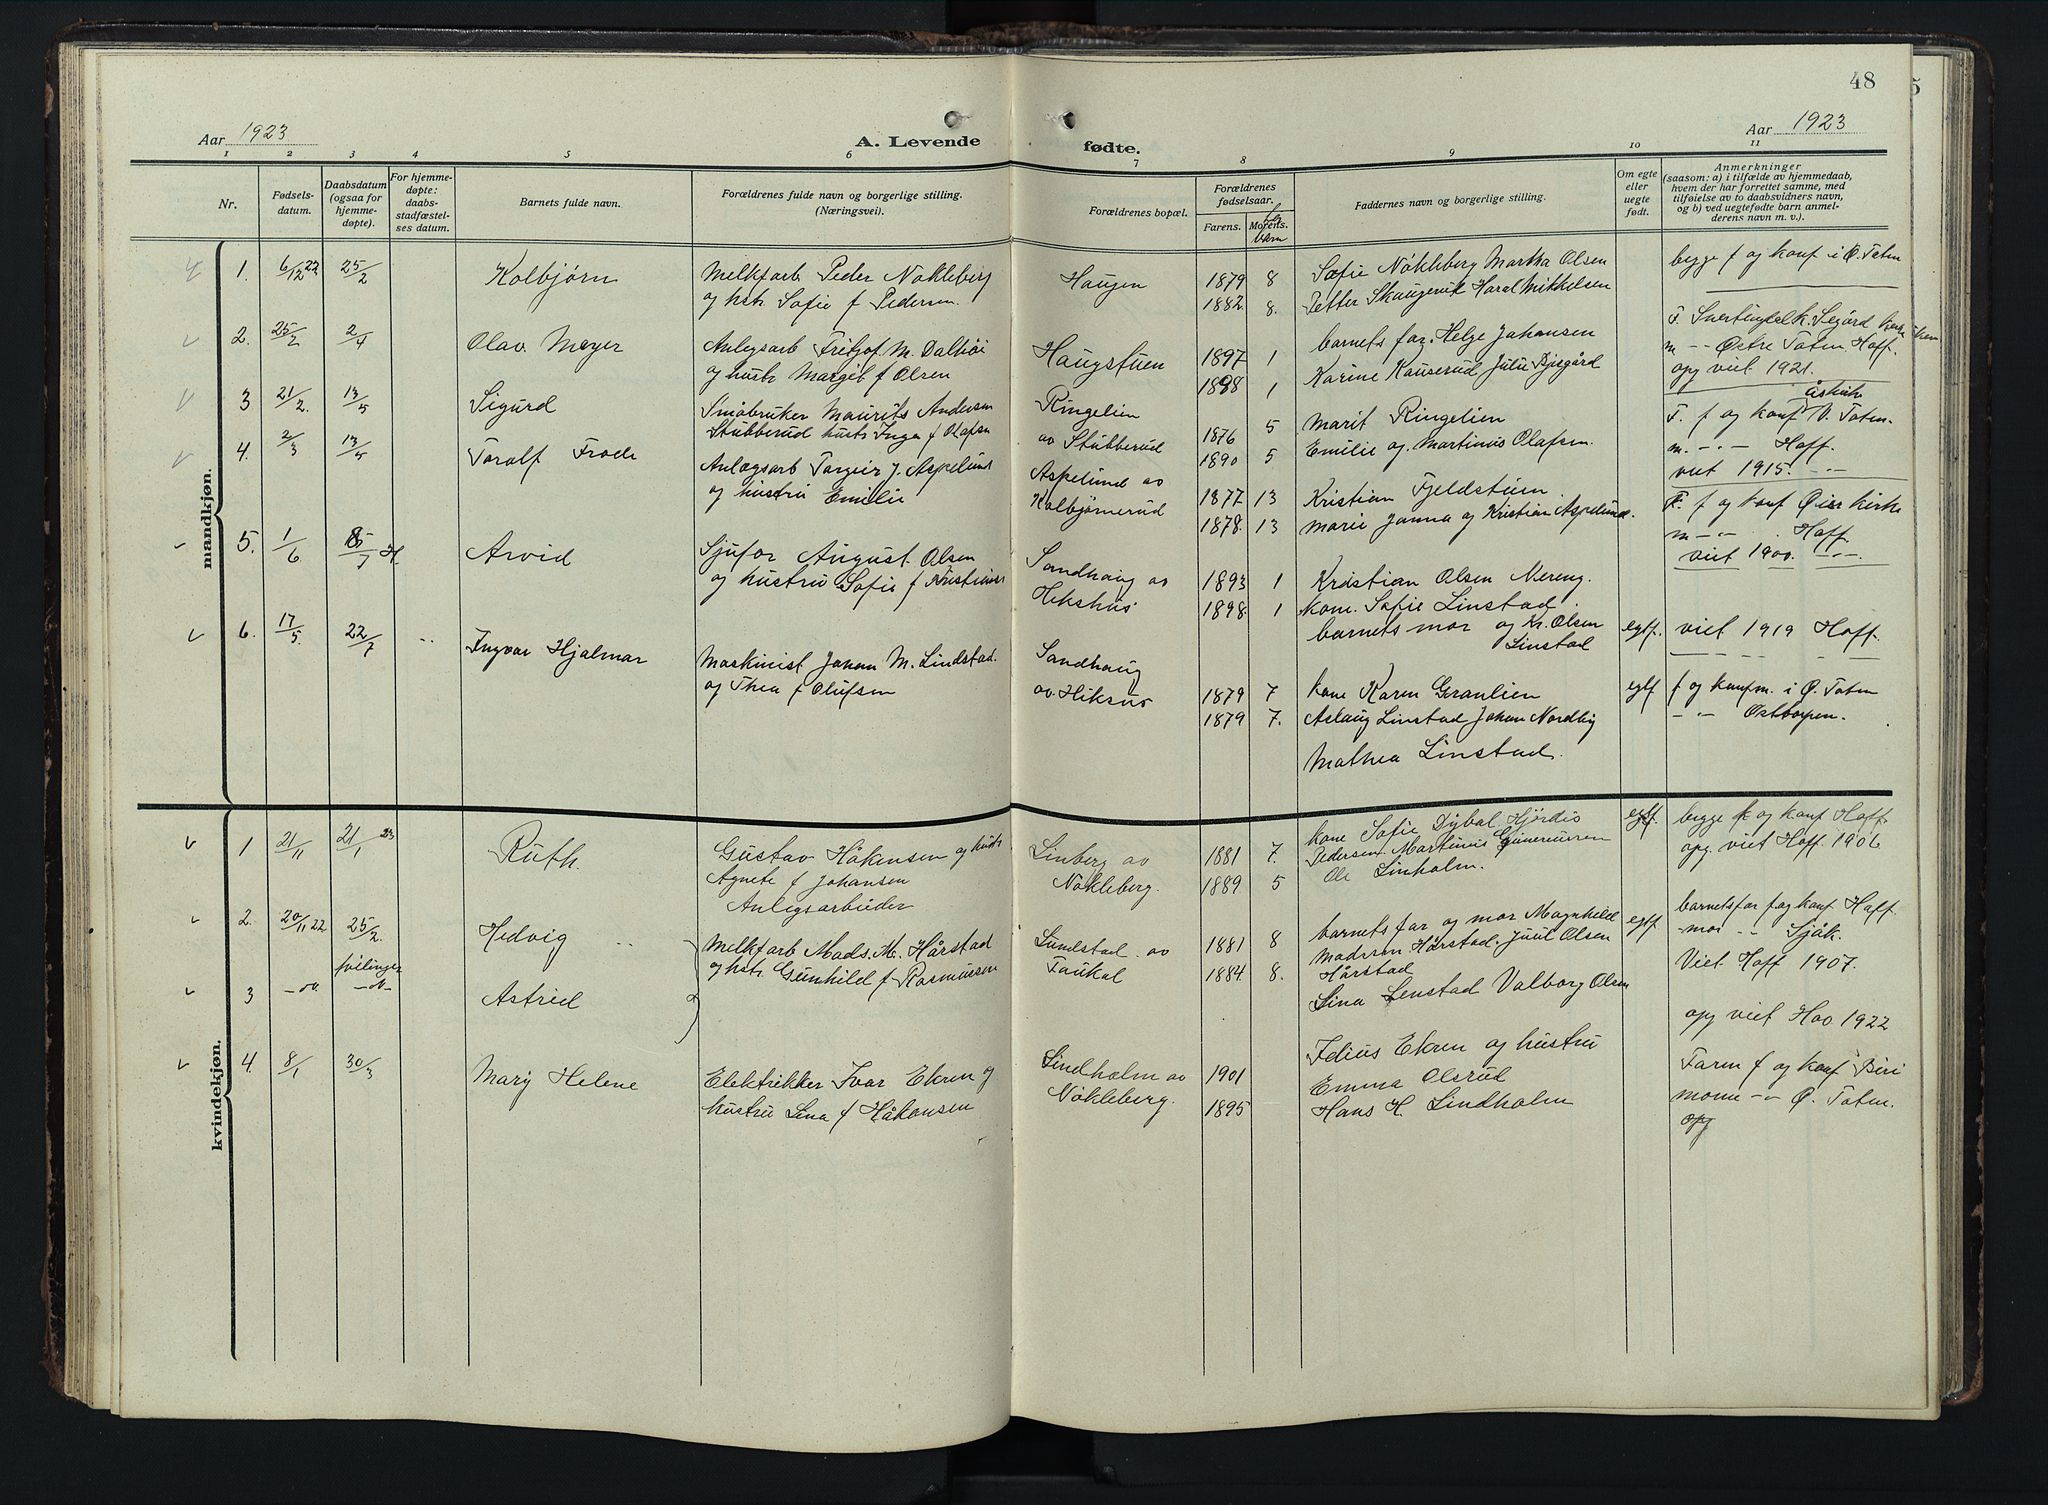 48
Aar 1923
A. Levende
fødte.
Aar 1923
1 2 3 4 5 6 7 8 9 10 11
Nr.
Fødsels-
datum.
Daabsdatum
(ogsaa for
hjemme-
døpte).
For hjemme-
døpte:
daabs-
stadfæstel-
ses datum.
Barnets fulde navn.
Forældrenes fulde navn og borgerlige stilling.
(Næringsvei).
Forældrenes bopæl.
Forældrenes
fødselsaar.
Farens. Morens.
barn
Faddernes navn og borgerlige stilling.
Om egte
eller
uegte
født.
Anmerkninger
(saasom: a) i tilfælde av hjemmedaab,
hvem der har forrettet samme, med
tilføielse av to daabsvidners navn,
og b) ved uegtefødte barn anmel-
derens navn m. v.).
mandkjøn.
1. 6/12 22 25/2 Kolbjørn
Melkfarb Peder Nøkleberg
og hstr Sofie f Pedersen.
Haugen
1879 8
1882. 8.
Sofie Nøkleberg Martha Olsen
Petter Skaugerud Haral Mikkelsen
begge f og konf i Ø. Toten
2. 25/2 2/4 Olav Meyer
Anlegsarb Fritjof M. Dalhøi
og hustr Margit f Olsen
Haugstuen
1897 1
1898 1
barnets far. Helge Johansen
Karine Hauserud Julie Bjegård
m -- Østre Toten Hoff.
opg viet 1921.
3 21/2. 13/5 Sigurd
Småbruker Maurits Andersen
Stubberud hustr Inga f Olafsen
Ringelien
av Stubberud
1876 5
1890 5
Marit Ringelien
Emilie og Martinus Olafsen.
F. f og konf V. Toten
m. -- Hoff.
viet 1915. --
4. 2/3 13/5 Toralf Frode
Anlægsarb Torgeir J. Aspelund
og hustru Emilie
Aspelund av
Kolbjørnerud
1877 13
1878. 13
Kristian Fjeldstuen
Marie Janna og Kristian Aspelund.
F. f og konf Øier kirke
m -- Hoff.
viet 1900. --
5. 1/6 15/7 H. Arvid
Sjufør August Olsen
og hustru Sofie f Kristiansen
Sandhaug av
Hekshus
1893 1
1898. 1
Kristian Olsen Nereng.
kone. Sofie Linstad.
barnets mor og Kr. Olsen
Linstad
egtf. viet 1919 Hoff.
6. 17/5. 22/7 -- Ingvar Hjalmar
Maskinist Johan M. Lindstad.
og Thea f Olufsen
Sandhaug
av. Heksus
1879 7
1879 7.
kone Karen Granlien
Aslaug Linstad Johan Nordby
Mathea Linstad.
egtf f og konfm. i Ø. Toten
-- Østtorpen.
kvindekjøn.
1 21/11 21/1 23 Ruth.
Gustav Håkensen og hustr
Agnete f Johansen
Anlegsarbeider
Linberg av
Nøkleberg.
1881 7.
1889 5
kone Sofie Dybal Hjørdis
Pedersen Martinus Gunerussen
Ole Linholm.
egtf. begge f og konf Hoff.
opg. viet Hoff. 1906
2. 20/11 22 25/2. Hedvig --
tvilinger
Melkfarb Mads. M. Hårstad
og hstr Gunhild f Rasmussen
Lundstad av
Taukal
1881 8
1884 8.
barnets far og mor Magnhild
Madssen Hårstad. Juul Olsen
Hårstad
egtf barnetsfar f og konf Hoff
mor -- Sjåk.
Viet. Hoff 1907.
3 -do. -do- Astrid
Lina Lenstad Valborg Olsen
opg viet Hov 1922
4 8/1 30/3 Mary Helene
Elektrikker Ivar Ekren og
hustru Lina f Håkensen
Lindholm av
Nøkleberg.
1901
1895
Idius Ekren og hustru
Emma Olsrud
Hans H. Lindholm
Faren f og konf Biri
moren -- Ø. Toten.
opg